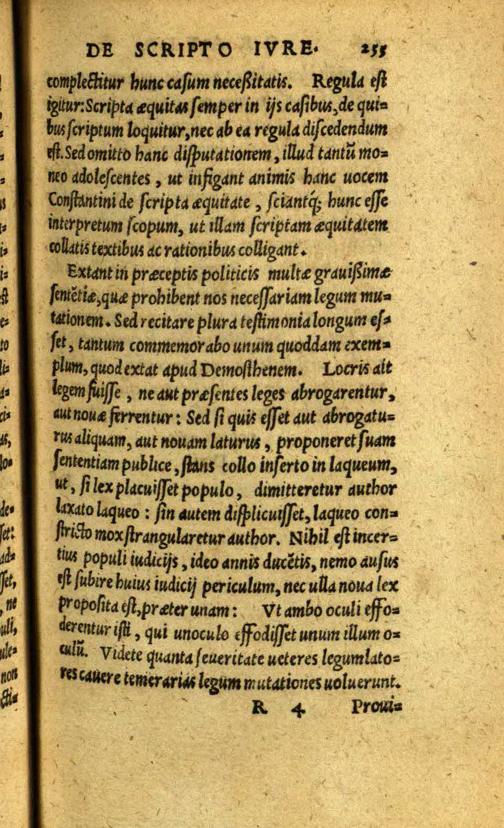 DE SCRIPTO IVRE. 255
complectitur hunc casum neceßitatis. Regula est
igitur: Scripta æquitas semper in ijs casibus, de qui-
bus scriptum loquitur, nec ab ea regula discedendum
est. Sed omitto hanc disputationem, illud tantū mo-
neo adolescentes, ut infigant animis hanc uocem
Constantini de scripta æquitate, sciantq́; hunc esse
interpretum scopum, ut illam scriptam æquitatem
collatis textibus ac rationibus colligant.
Extant in præceptis politicis multæ grauißimæ
sentētiæ, quæ prohibent nos necessariam legum mu-
tationem. Sed recitare plura testimonia longum es-
set, tantum commemorabo unum quoddam exem-
plum, quod extat apud Demosthenem. Locris ait
legem fuisse, ne aut præsentes leges abrogarentur,
aut nouæ ferrentur: Sed si quis esset aut abrogatu-
rus aliquam, aut nouam laturus, proponeret suam
sententiam publice, stans collo inserto in laqueum,
ut, si lex placuisset populo, dimitteretur author
laxato laqueo: sin autem displicuisset, laqueo con-
stricto mox strangularetur author. Nihil est incer-
tius populi iudicijs, ideo annis ducētis, nemo ausus
est subire huius iudicij periculum, nec ulla noua lex
proposita est, præter unam: Vt ambo oculi effo-
derentur isti, qui unoculo effodisset unum illum o-
culū. Videte quanta seueritate ueteres legumlato-
res cauere temerarias legum mutationes uoluerunt.
R 4 Proui-